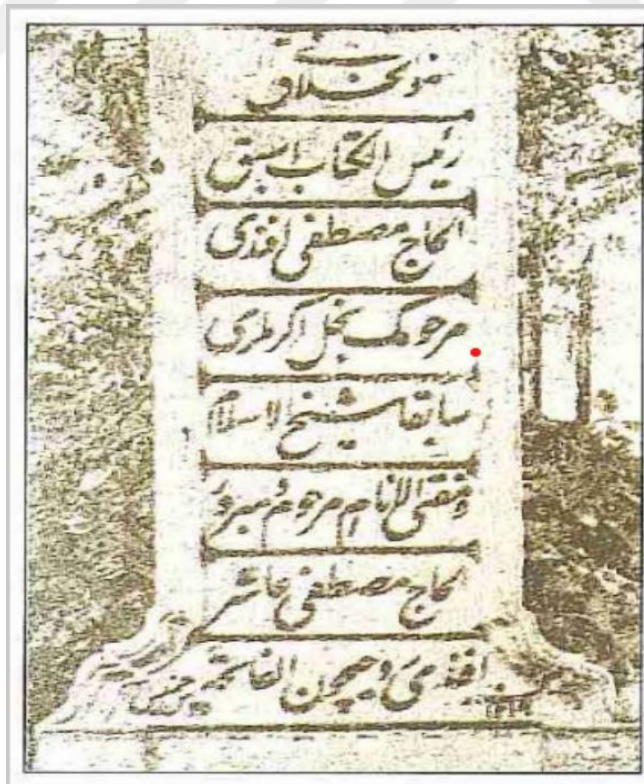 هو الخلاق
رئيس الكتاب اسبق
الحاج مصطفى افندى
مرحومك نجل اكرملرى
سابقا شيخ الاسلام
ومفتى الانام مرحوم و مبرور
الحاج مصطفى عاشر
افندى روحيچون الفاتحه
١٢١٩